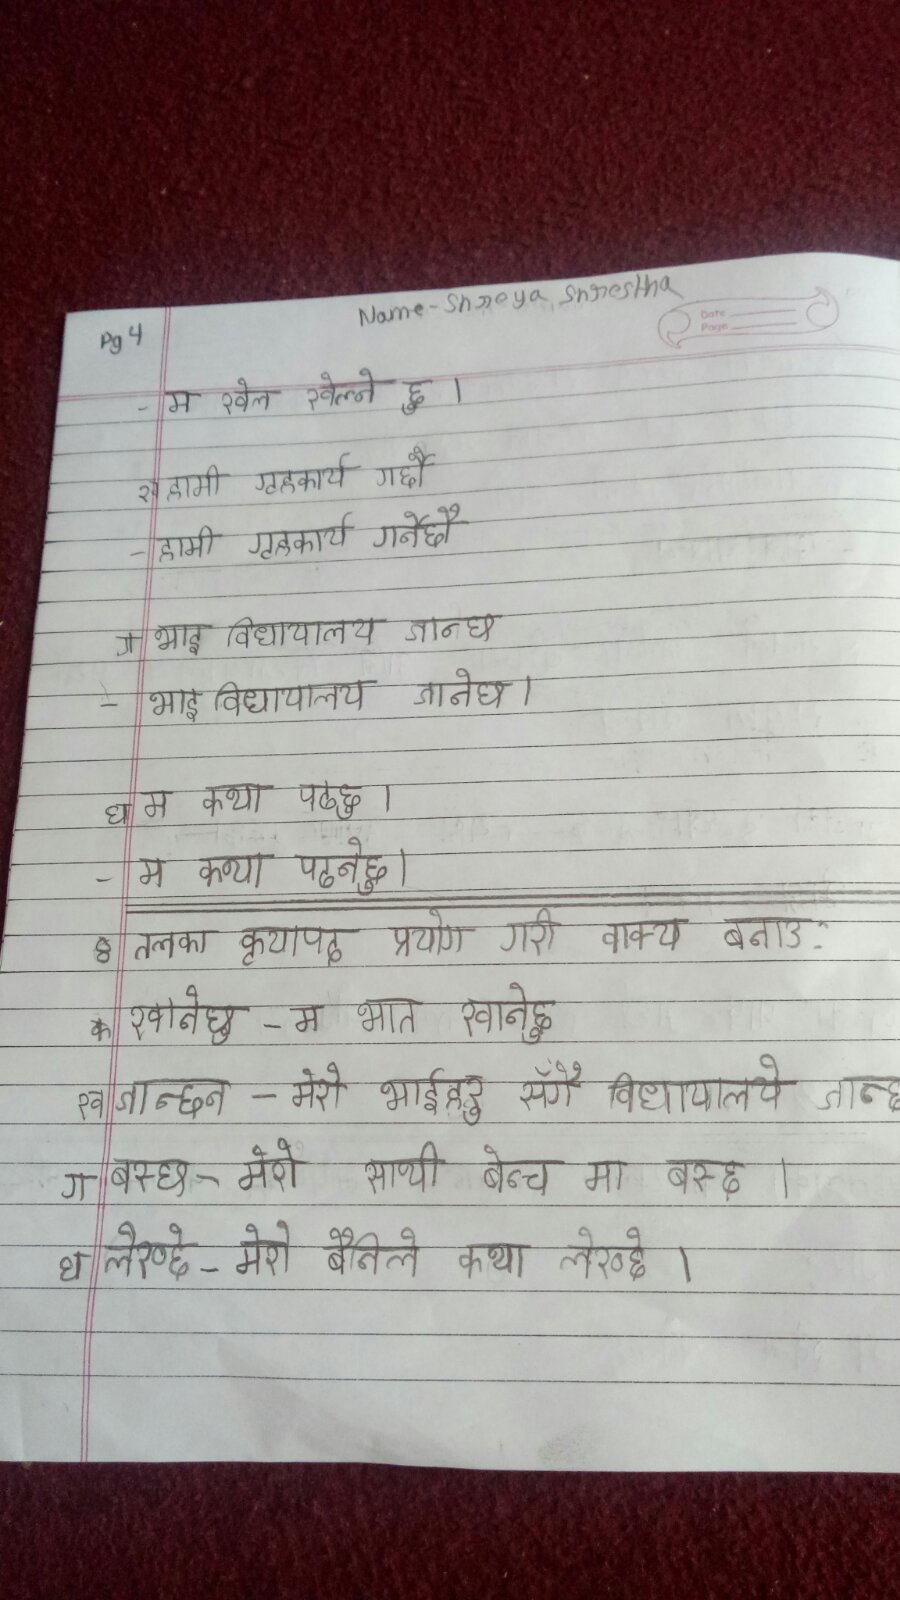 Pg 4
Name - Shreya Shrestha
Date
Page
- म खेल खेल्ने छु ।
ख हामी गृहकार्य गर्छौ
- हामी गृहकार्य गर्नेछौ
ग भाइ विद्यायालय जान्छ
- भाइ विद्यायालय जानेछ ।
घ म कथा पढ्छु ।
- म कथा पढ्नेछु ।
8 तलका कृयापद प्रयोग गरी वाक्य बनाउ :
क खानेछु - म भात खानेछु
ख जान्छन - मेरो भाईहरु सँगै विद्यायालये जान्छ
ग बस्छ - मेरो साथी बेन्च मा बस्छ ।
घ लेख्छे - मेरो बैनिले कथा लेख्छे ।